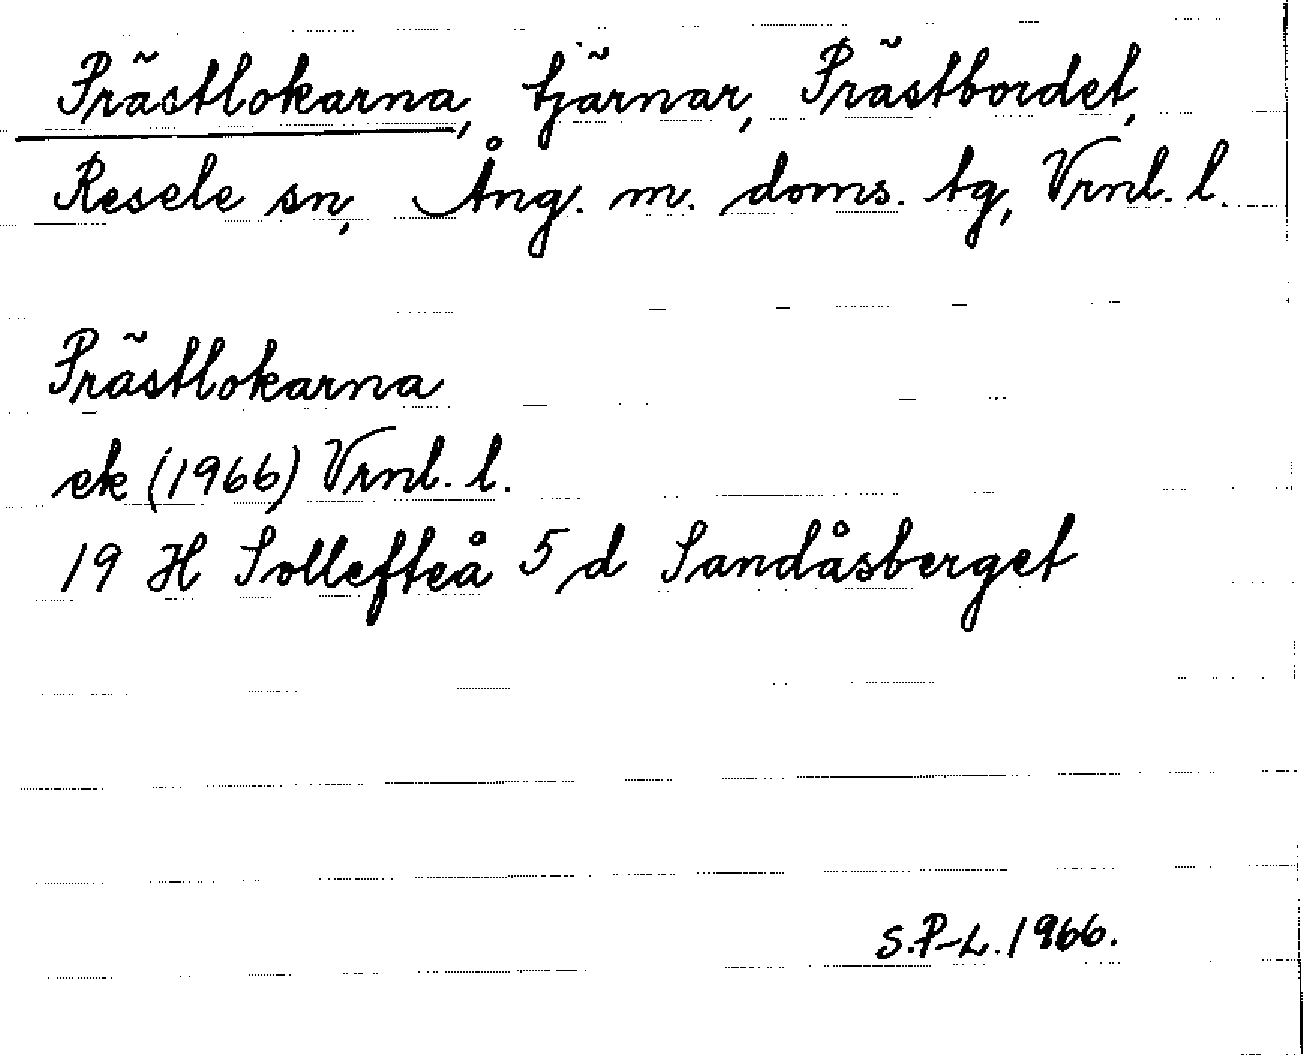 Prästlokarna, tjärnar, Prästbordet,
Resele sn, Ång. m. doms. tg, Vrnl. l.
Prästlokarna
ek (1966) Vrnl. l.
19 H Sollefteå 5 d Sandåsberget
S.P-L. 1966.